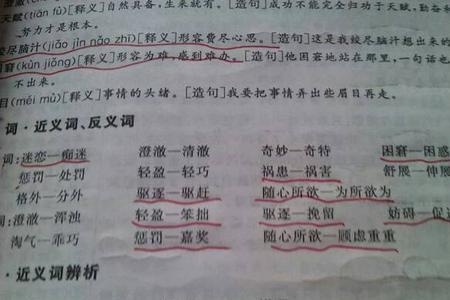 天赋(tiān fù)[释义]自然具备,生来就有。[造句]成功不能完全归功于天赋,勤奋和
努力才是根本。
绞尽脑汁(jiǎo jìn nǎo zhī)[释义]形容费尽心思。[造句]这是我绞尽脑汁想出来的
困窘(kùn jiǒng)[释义]形容为难,感到难办。[造句]他困窘地站在那里,一句话也
不出来。
目(méi mù)[释义]事情的头绪。[造句]我要把事情弄出些眉目再走。
词·近义词、反义词
词:迷恋—痴迷 澄澈—清澈 奇妙—奇特 困窘—困惑
惩罚—处罚 轻盈—轻巧 祸患—祸害 舒展—伸展
格外—分外 驱逐—驱赶 随心所欲—为所欲为
词:澄澈—浑浊 轻盈—笨拙 驱逐—挽留 妨碍—促进
淘气—乖巧 惩罚—嘉奖 随心所欲—顾虑重重
·近义词辨析